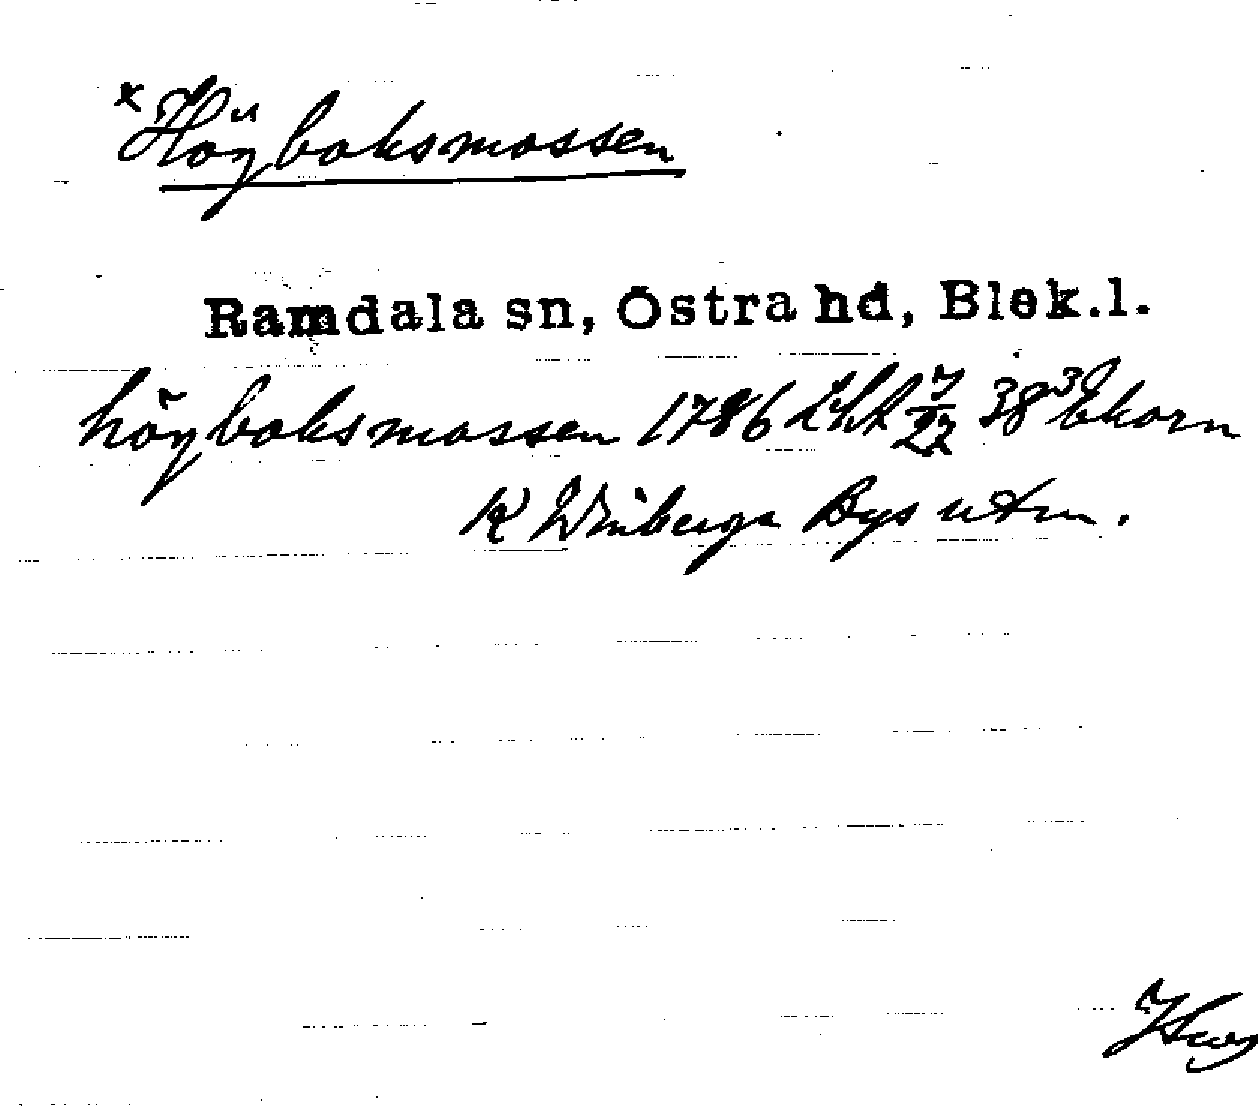 * Högboksmossen
Ramdala sn, Östra hd, Blek.l.
högboksmossen 1786 Lht 7/22 38³ Ekorn
K Winberga Bys utm.